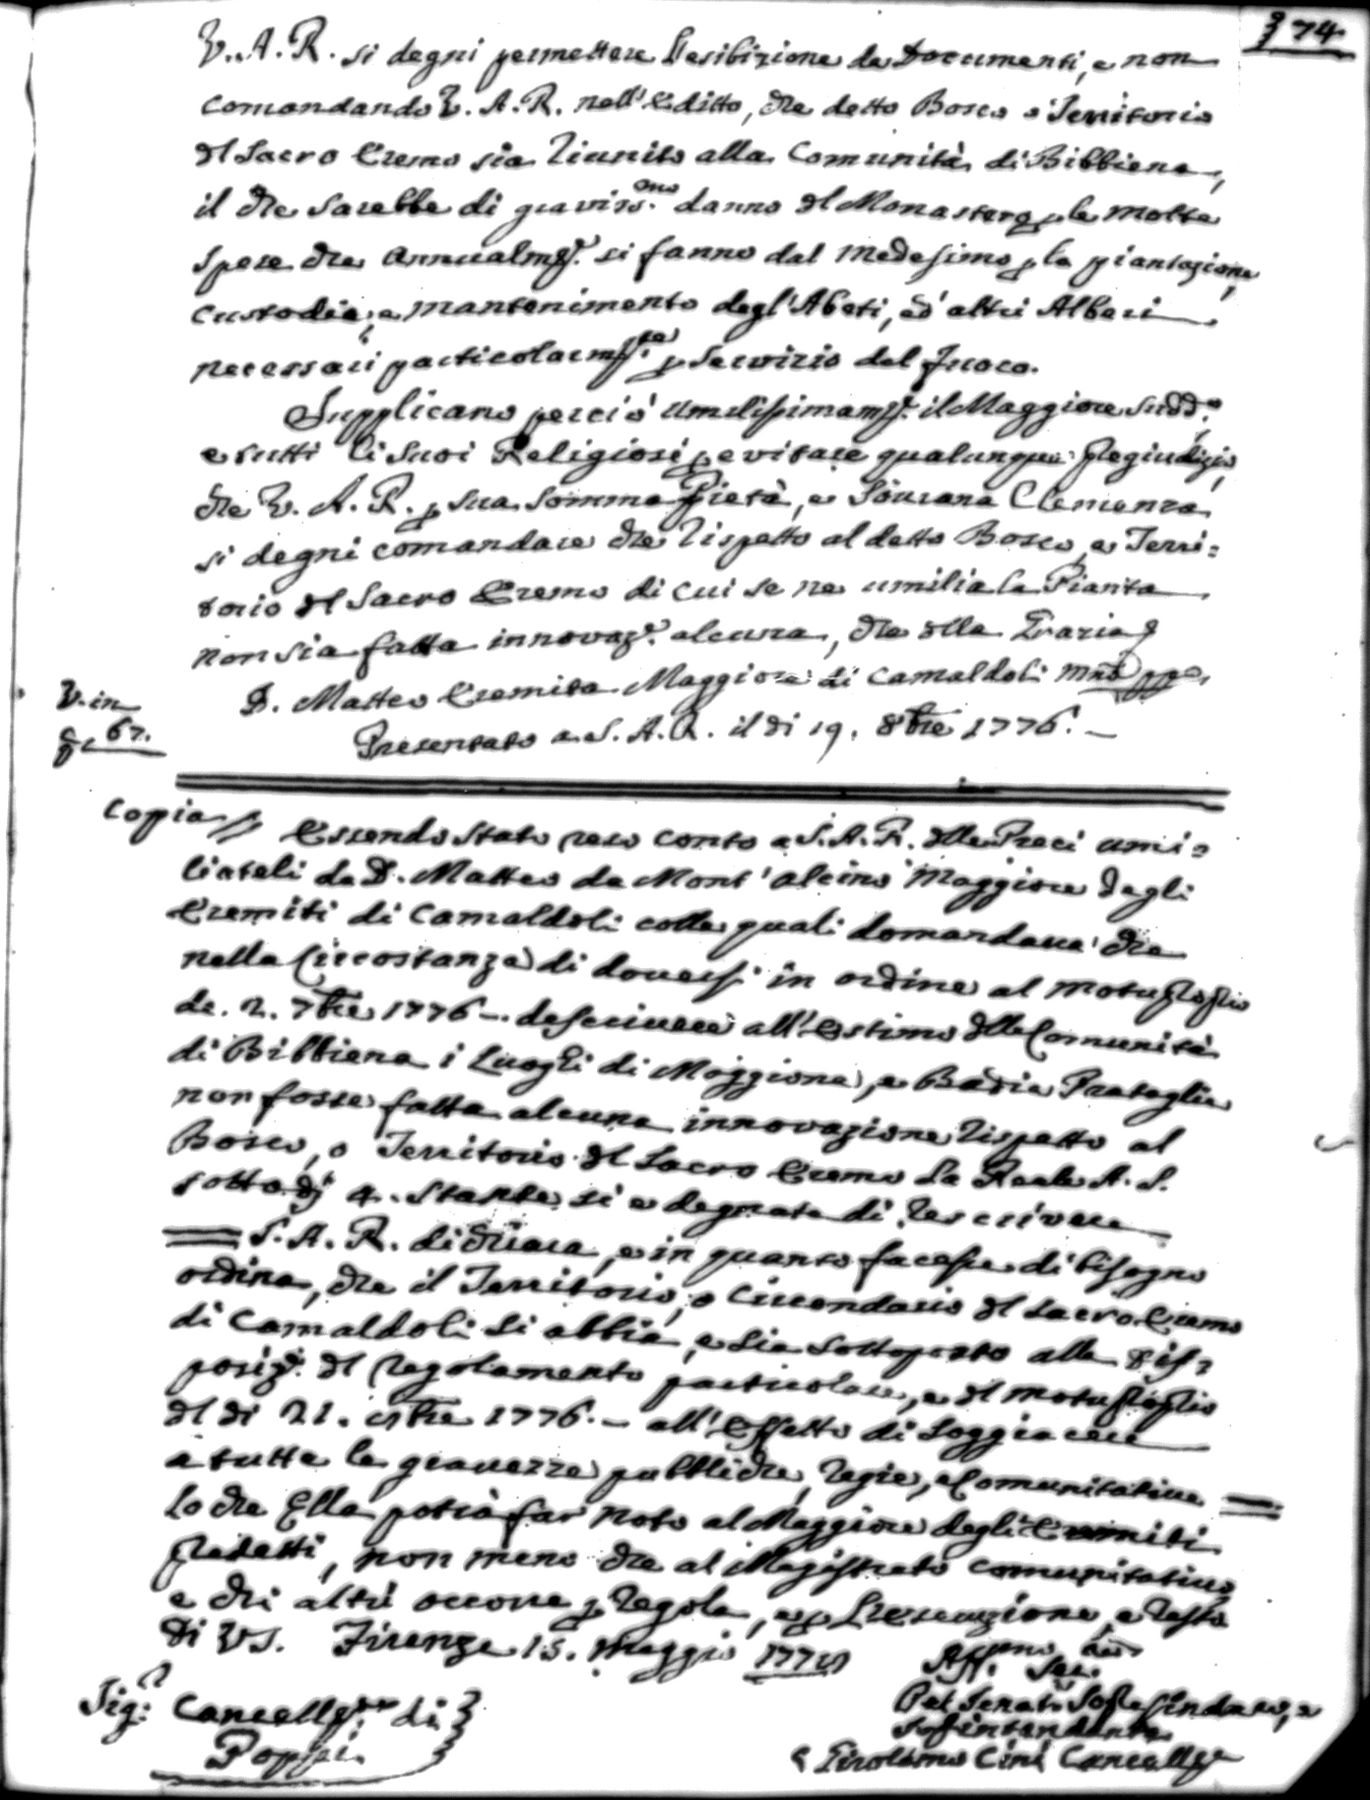 374
V. A. R. si degni permettere l'esibizione de Documenti, e non
comandando V. A. R. nell'Editto, che detto Bosco o Territorio
del Sacro Eremo sia riunito alla Comunità di Bibbiena,
il che sarebbe di graviss.mo danno del Monastero p. le molte
spese che annualm.e si fanno dal medesimo p. la piantazione,
custodia, e mantenimento degl'Abeti, ed altri Alberi
necessari particolarm.te p. servizio del fuoco.
Supplicano perciò umilissimam.e il Maggiore sudd.o
e tutti li suoi Religiosi p. evitare qualunque pregiudizio,
che V. A. R. p. sua somma Pietà, e Sovrana Clemenza
si degni comandare che rispetto al detto Bosco, e Terri=
torio del Sacro Eremo di cui se ne umilia la Pianta
non sia fatta innovaz.e alcuna, che della Grazia
D. Matteo Eremita Maggiore di Camaldoli mño pp.a
V. in
67.
Presentato a S. A. R. il di 19. 8bre 1776. —
Copia // Essendo stato reso conto a S. A. R. delle Preci umi=
liateli da D. Matteo da Mont'alcino Maggiore degli
Eremiti di Camaldoli colle quali domandava che
nella Circostanza di doversi in ordine al motuproprio
de. 2. 7bre 1776 —. descrivere all'Estimo della Comunità
di Bibbiena i Luoghi di Moggiona, e Badia Prataglia
non fosse fatta alcuna innovazione rispetto al
Bosco, o Territorio del Sacro Eremo La Reale A. S.
sotto dì 4. stante si è degnata di rescrivere
= S. A. R. dichiara, e in quanto facesse di bisogno
ordina, che il Territorio, o Circondario del Sacro Eremo
di Camaldoli si abbia, e sia sottoposto alle dis=
posiz.i del regolamento particolare, e del motuproprio
del di 21. 1776. — all'Effetto di soggiacere
a tutte le gravezze pubbliche, regie, e Comunitative =
Lo che Ella potrà far noto al Maggiore degli Eremiti
predetti, non meno che al Magistrato comunitativo
e chi altri occorre p. regola, e p. l'esecuzione, e resto
di VS. Firenze 15. Maggio
Sig.e Cancell.re di
Poppi
Aff.mo Ser.
Pel Senat. Sopras​sindaco, e
Soprintendente
Girolamo Cini Cancell.e